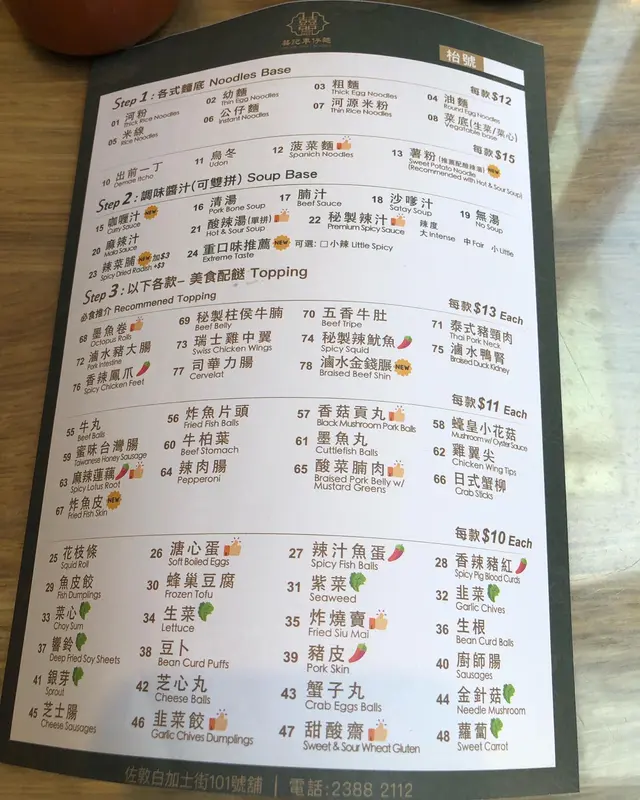 囍記車仔麵
枱號
Step 1 : 各式麵底 Noodles Base
每款$12
01 河粉 Thick Rice Noodles
02 幼麵 Thin Egg Noodles
03 粗麵 Thick Egg Noodles
04 油麵 Round Egg Noodles
05 米線 Rice Noodles
06 公仔麵 Instant Noodles
07 河源米粉 Thin Rice Noodles
08 菜底(生菜/菜心) Vegetable base
每款$15
10 出前一丁 Demae Itcho
11 烏冬 Udon
12 菠菜麵 Spanich Noodles
13 薯粉(推薦配酸辣湯) NEW Sweet Potato Noodle (Recommended with Hot & Sour Soup)
Step 2 : 調味醬汁(可雙拼) Soup Base
15 咖喱汁 NEW Curry Sauce
16 清湯 Pork Bone Soup
17 腩汁 Beef Sauce
18 沙嗲汁 Satay Soup
19 無湯 No Soup
20 麻辣汁 Mala Sauce
21 酸辣湯(單拼) Hot & Sour Soup
22 秘製辣汁 Premium Spicy Sauce
辣度 大 Intense 中 Fair 小 Little
23 辣菜脯 NEW 加$3 Spicy Dried Radish +$3
24 重口味推薦 NEW Extreme Taste
可選: □小辣 Little Spicy
Step 3 : 以下各款– 美食配餸 Topping
必食推介 Recommened Topping
每款$13 Each
68 墨魚卷 Octopus Rolls
69 秘製柱侯牛腩 Beef Belly
70 五香牛肚 Beef Tripe
71 泰式豬頸肉 Thai Pork Neck
72 滷水豬大腸 Pork Intestine
73 瑞士雞中翼 Swiss Chicken Wings
74 秘製辣魷魚 Spicy Squid
75 滷水鴨腎 Braised Duck Kidney
76 香辣鳳爪 Spicy Chicken Feet
77 司華力腸 Cervelat
78 滷水金錢𦟌 NEW Braised Beef Shin
每款$11 Each
55 牛丸 Beef Balls
56 炸魚片頭 Fried Fish Balls
57 香菇貢丸 Black Mushroom Pork Balls
58 蠔皇小花菇 Mushroom w/ Oyster Sauce
59 蜜味台灣腸 Taiwanese Honey Sausage
60 牛柏葉 Beef Stomach
61 墨魚丸 Cuttlefish Balls
62 雞翼尖 Chicken Wing Tips
63 麻辣蓮藕 Spicy Lotus Root
64 辣肉腸 Pepperoni
65 酸菜腩肉 Braised Pork Belly w/ Mustard Greens
66 日式蟹柳 Crab Sticks
67 炸魚皮 NEW Fried Fish Skin
每款$10 Each
25 花枝條 Squid Roll
26 溏心蛋 Soft Boiled Eggs
27 辣汁魚蛋 Spicy Fish Balls
28 香辣豬紅 Spicy Pig Blood Curds
29 魚皮餃 Fish Dumplings
30 蜂巢豆腐 Frozen Tofu
31 紫菜 Seaweed
32 韭菜 Garlic Chives
33 菜心 Choy Sum
34 生菜 Lettuce
35 炸燒賣 Fried Siu Mai
36 生根 Bean Curd Balls
37 響鈴 Deep Fried Soy Sheets
38 豆卜 Bean Curd Puffs
39 豬皮 Pork Skin
40 廚師腸 Sausages
41 銀芽 Sprout
42 芝心丸 Cheese Balls
43 蟹子丸 Crab Eggs Balls
44 金針菇 Needle Mushroom
45 芝士腸 Cheese Sausages
46 韭菜餃 Garlic Chives Dumplings
47 甜酸齋 Sweet & Sour Wheat Gluten
48 蘿蔔 Sweet Carrot
佐敦白加士街101號舖 | 電話:2388 2112